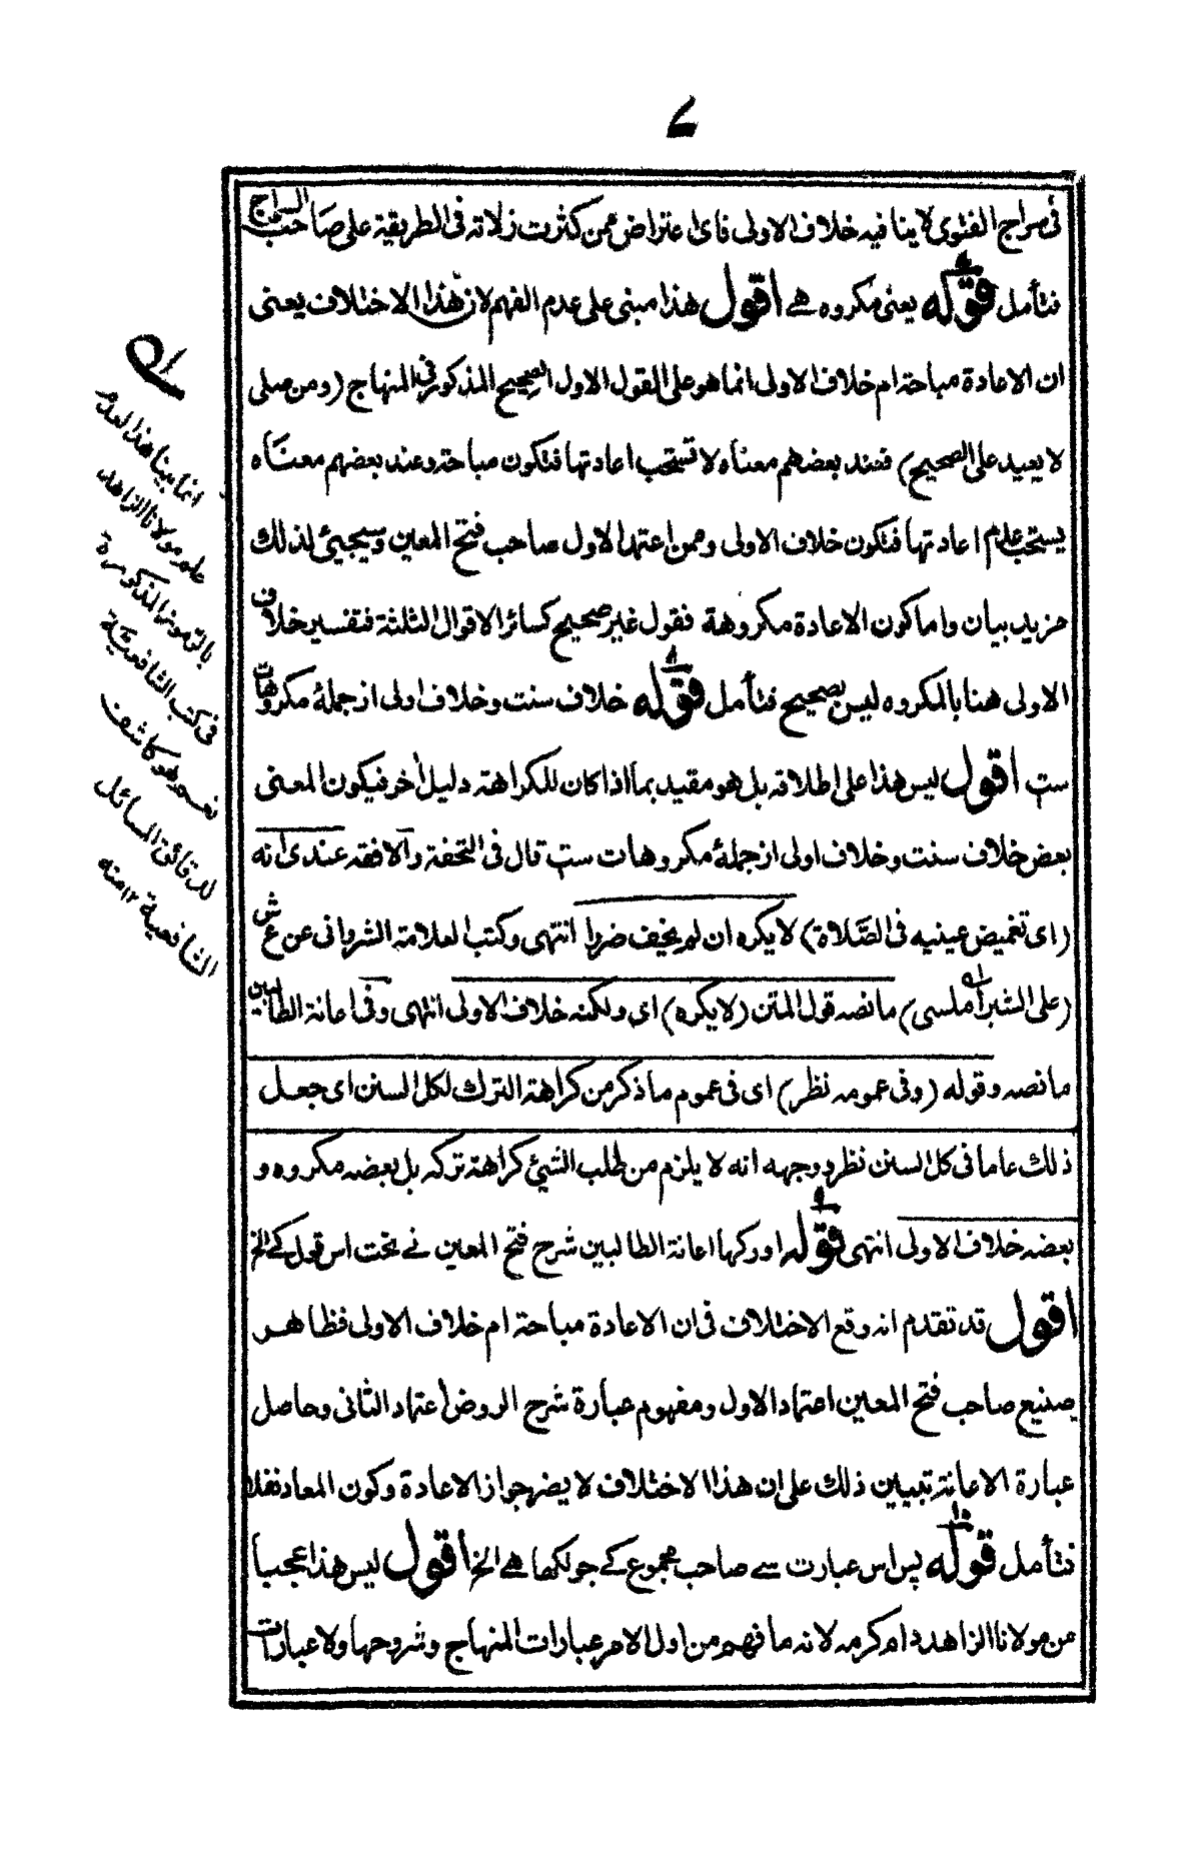 ٧
فى سراج الفتوى لا ينافيه خلاف الاولى فاى اعتراض ممن كثرت زلاته فى الطريقية على صاحب السراج
فتأمل قوله ٧ يعنى مكروه ہے اقول هذا مبنى على عدم الفهم لان هذا الاختلاف يعنى
ان الاعادة مباحة ام خلاف الاولى انما هو على القول الاول الصحيح المذكور فى المنهاج (ومن صلى
لا يعيد على الصحيح) فعند بعضهم معناه لا تستحب اعادتها فتكون مباحة وعند بعضهم معناه
يستحب عدم اعادتها فتكون خلاف الاولى وممن اعتمد الاول صاحب فتح المعين وسيجيئ لذلك
مزيد بيان واما كون الاعادة مكروهة فقول غير صحيح كسائر الاقوال الثلثة فتفسير خلاف
الاولى هنا بالمكروه ليس بصحيح فتأمل قوله ٨ خلاف سنت وخلاف اولى از جملۂ مكروهات
ست اقول ليس هذا على اطلاقه بل هو مقيد بما اذا كان للكراهة دليل اخر فيكون المعنى
بعض خلاف سنت وخلاف اولى از جملۂ مكروهات ست قال فى التحفة والافقه عندى انه
(اى تغميض عينيه فى الصَّلاة) لا يكره ان لم يخف ضررا انتهى وكتب العلامة الشروانى عن ع ش
(على الشبراملسى) ما نصه قول المتن (لا يكره) اى ولكنه خلاف الاولى انتهى وفى اعانة الطالبين
ما نصه وقوله (وفى عمومه نظر) اى فى عموم ما ذكر من كراهة الترك لكل السنن اى جعل
ذلك عاما فى كل السنن نظر ووجهه انه لا يلزم من طلب الشيئ كراهة تركه بل بعضه مكروه و
بعضه خلاف الاولى انتهى قوله ٩ اور كہا اعانة الطالبين شرح فتح المعين نے تحت اس قول كے الخ
اقول قد تقدم انه وقع الاختلاف فى ان الاعادة مباحة ام خلاف الاولى فظاهر
صنيع صاحب فتح المعين اعتماد الاول ومفهوم عبارة شرح الروض اعتماد الثانى وحاصل
عبارة الاعانة تبيين ذلك على ان هذا الاختلاف لا يضر جواز الاعادة وكون المعاد نفلا
فتأمل قوله ١٠ پس اس عبارت سے صاحب مجموع كے جو لكھا ہے الخ اقول ليس هذا عجبا
من مولانا الزاهد دام كرمه لانه ما فهم من اول الامر عبارات المنهاج وشروحها ولا عبارات
له
انما بينا هذا لعدم
علم مولانا الزاهد
بالرموز المذكورة
فى كتب الشافعيّة
نعم هو كاشف
لدقائق المسائل
الشافعية ١٢ منه